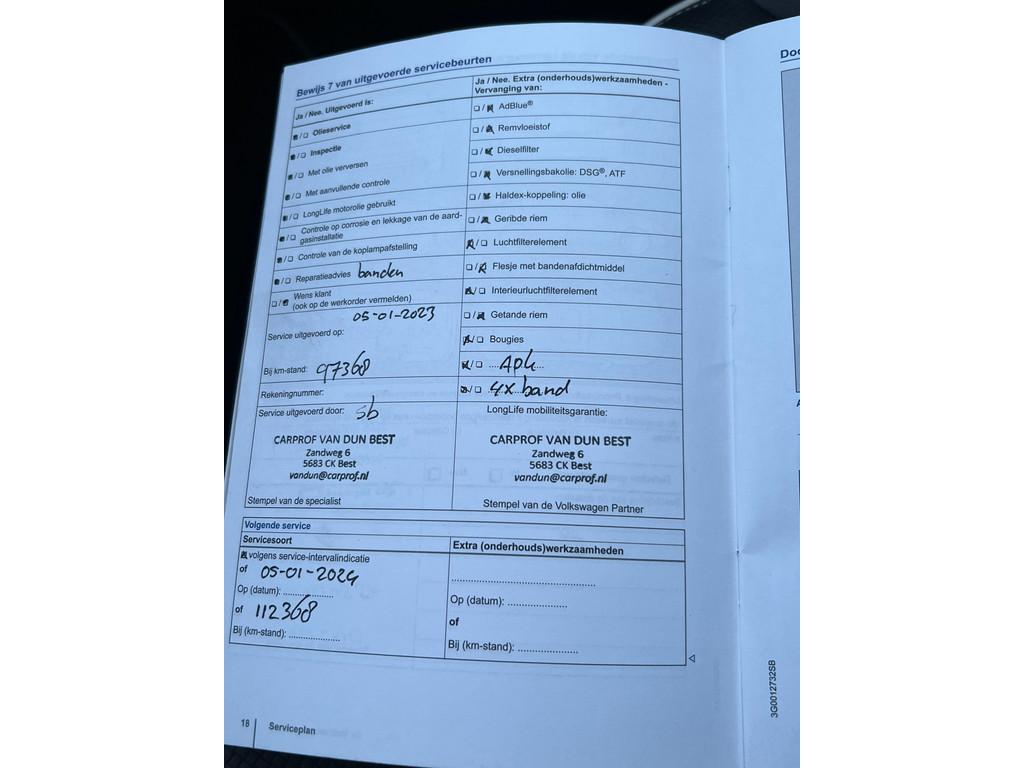 Bewijs 7 van uitgevoerde servicebeurten
Ja / Nee. Uitgevoerd is:
Olieservice
Inspectie
Met olie verversen
Met aanvullende controle
LongLife motorolie gebruikt
Controle op corrosie en lekkage van de aard-
gasinstallatie
Controle van de koplampafstelling
Reparatieadvies banden
Wens klant
(ook op de werkorder vermelden)
05-01-2023
Service uitgevoerd op:
Bij km-stand: 97368
Rekeningnummer:
Service uitgevoerd door: sb
CARPROF VAN DUN BEST
Zandweg 6
5683 CK Best
vandun@carprof.nl
Stempel van de specialist
Ja / Nee. Extra (onderhouds)werkzaamheden -
Vervanging van:
AdBlue®
Remvloeistof
Dieselfilter
Versnellingsbakolie: DSG®, ATF
Haldex-koppeling: olie
Geribde riem
Luchtfilterelement
Flesje met bandenafdichtmiddel
Interieurluchtfilterelement
Getande riem
Bougies
Apk
4x band
LongLife mobiliteitsgarantie:
CARPROF VAN DUN BEST
Zandweg 6
5683 CK Best
vandun@carprof.nl
Stempel van de Volkswagen Partner
Volgende service
Servicesoort
volgens service-intervalindicatie
of 05-01-2024
Op (datum): ..................
of 112368
Bij (km-stand): ..................
Extra (onderhouds)werkzaamheden
..................................................
Op (datum): .....................
of
Bij (km-stand): .....................
18 Serviceplan
3G0012732SB